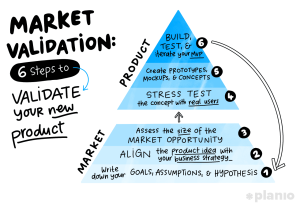 MARKET
VALIDATION:
6 steps to
VALIDATE
your new
product
PRODUCT
BUILD,
TEST, &
iterate your MVP
6
Create PROTOTYPES,
MOCKUPS, & CONCEPTS
5
STRESS TEST
the concept with real users
4
MARKET
Assess the size of the
MARKET OPPORTUNITY
3
ALIGN the product idea with
your business strategy
2
Write
down your
GOALS, ASSUMPTIONS, & HYPOTHESIS
1
planio